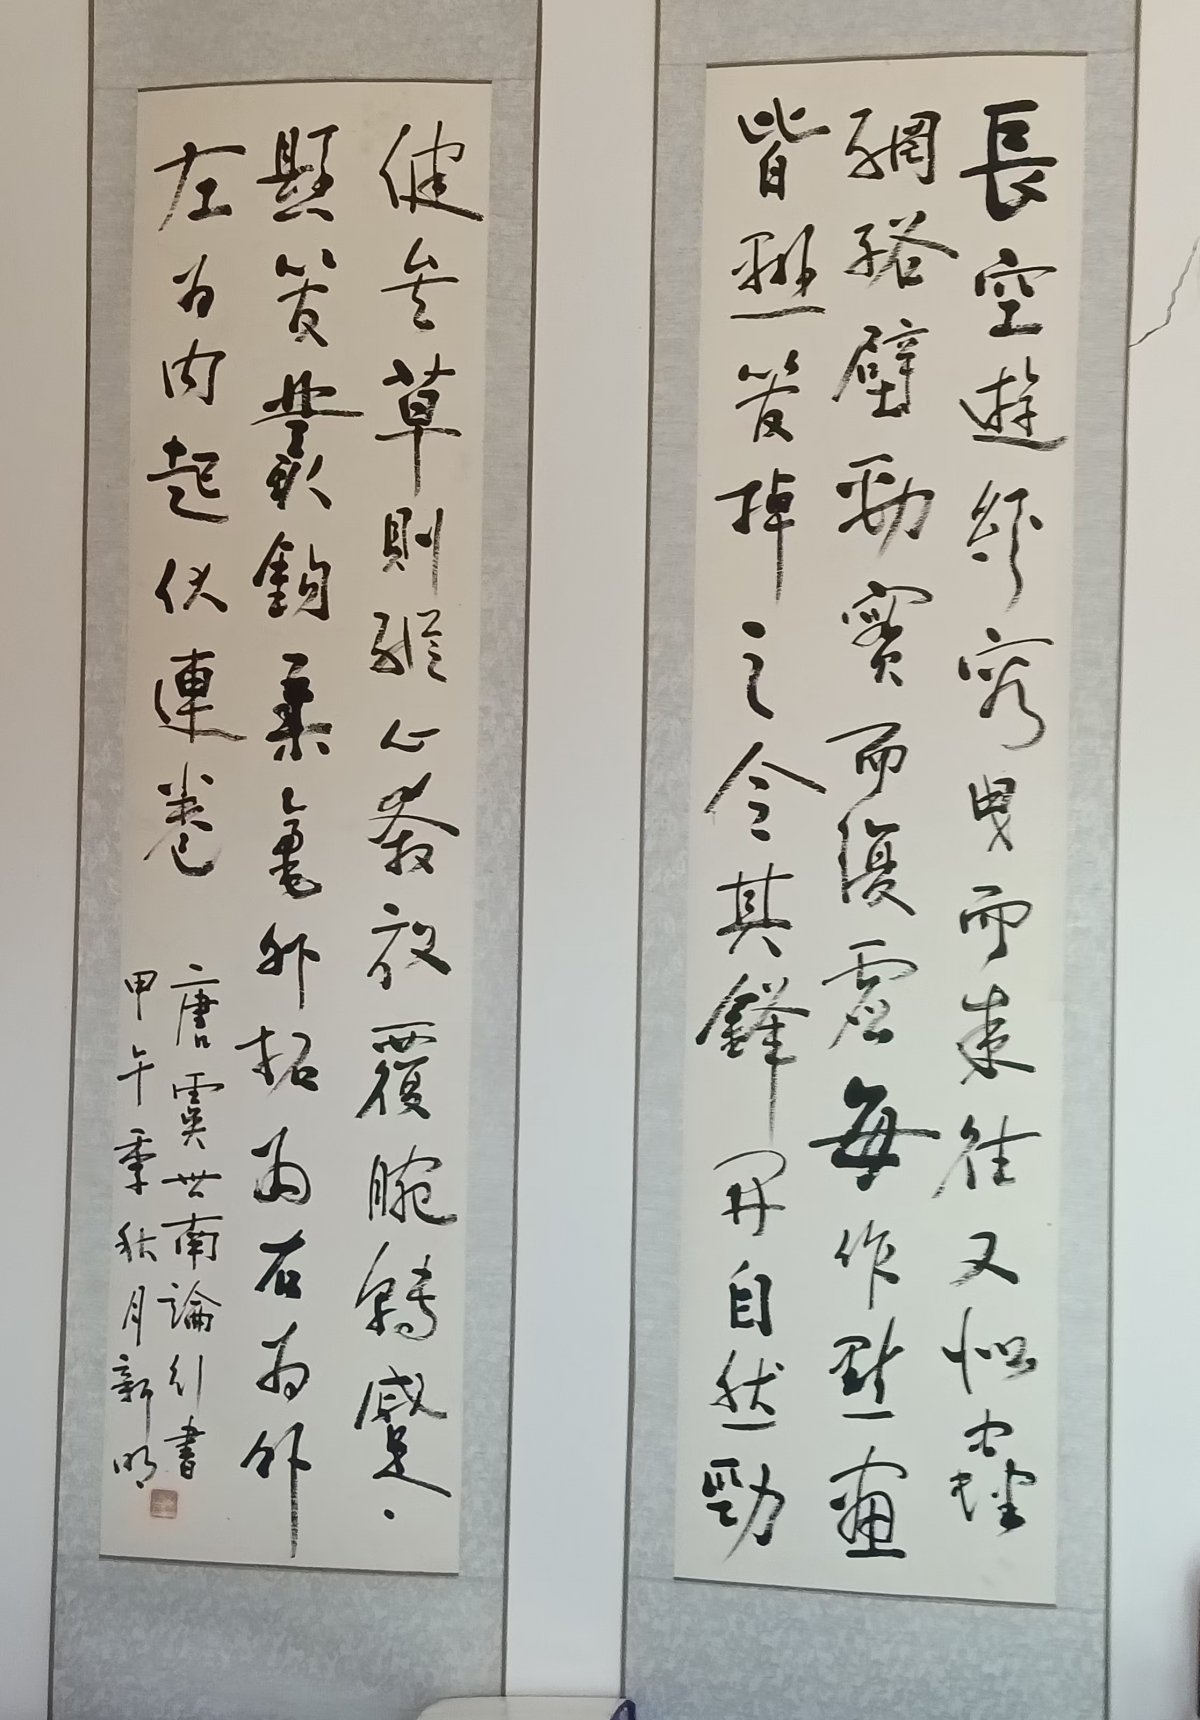 長空遊絲容曳而来往又似蟲
網絡壁勁實而復虛每作點畫
皆懸管掉之令其鋒開自然勁
健矣草則縱心奔放覆腕轉蹙、
懸管聚鋒柔毫外拓為右為外
左為内起伏連卷
唐虞世南論行書
甲午季秋月新明